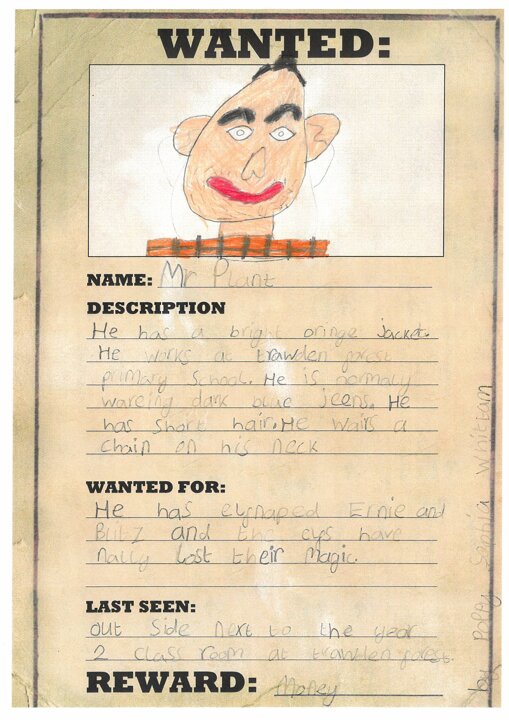 WANTED:
NAME: Mr Plant
DESCRIPTION
He has a bright oringe jacket.
He works at trawden forest
primary School. He is normaly
wareing dark blue jeens. He
has short hair. He wairs a
chain on his neck
WANTED FOR:
He has elfnaped Ernie and
Blitz and the elfs have
nally lost their magic.
LAST SEEN:
out side next to the year
2 class room at trawden forest.
REWARD: Money
by Poppy Whittam